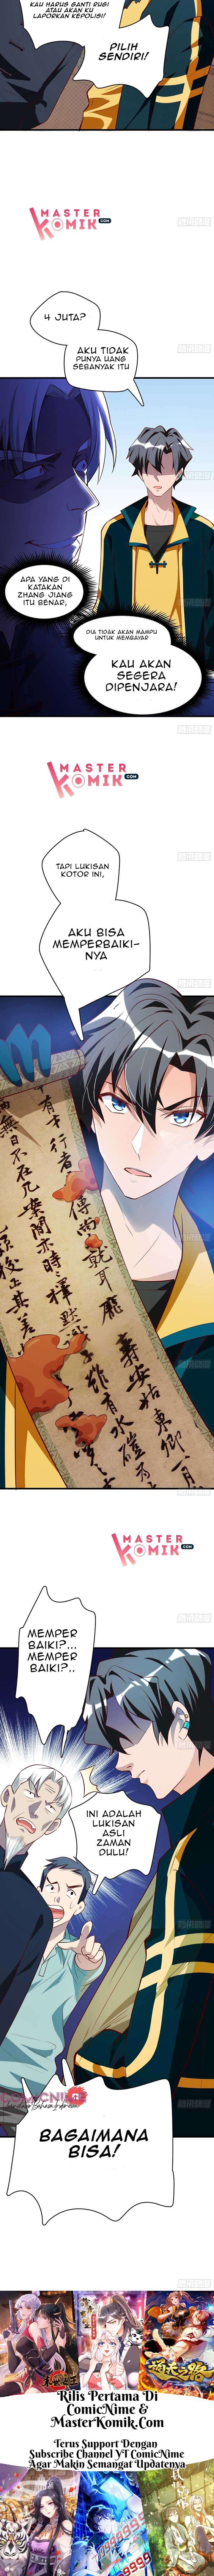 KAU HARUS GANTI RUGI
ATAU AKAN KU
LAPORKAN KEPOLISI!
PILIH
SENDIRI!
MASTER
KOMIK
.COM
4 JUTA?
AKU TIDAK
PUNYA UANG
SEBANYAK ITU
APA YANG DI
KATAKAN
ZHANG JIANG
ITU BENAR,
DIA TIDAK AKAN MAMPU
UNTUK MEMBAYAR
KAU AKAN
SEGERA
DIPENJARA!
MASTER
KOMIK
.COM
TAPI LUKISAN
KOTOR INI,
AKU BISA
MEMPERBAIKI-
NYA
MASTER
KOMIK
.COM
MEMPER
BAIKI?...
MEMPER
BAIKI?..
INI ADALAH
LUKISAN
ASLI
ZAMAN
DULU!
BAGAIMANA
BISA!
Rilis Pertama Di
ComicNime &
MasterKomik.Com
Terus Support Dengan
Subscribe Channel YT ComicNime
Agar Makin Semangat Updatenya